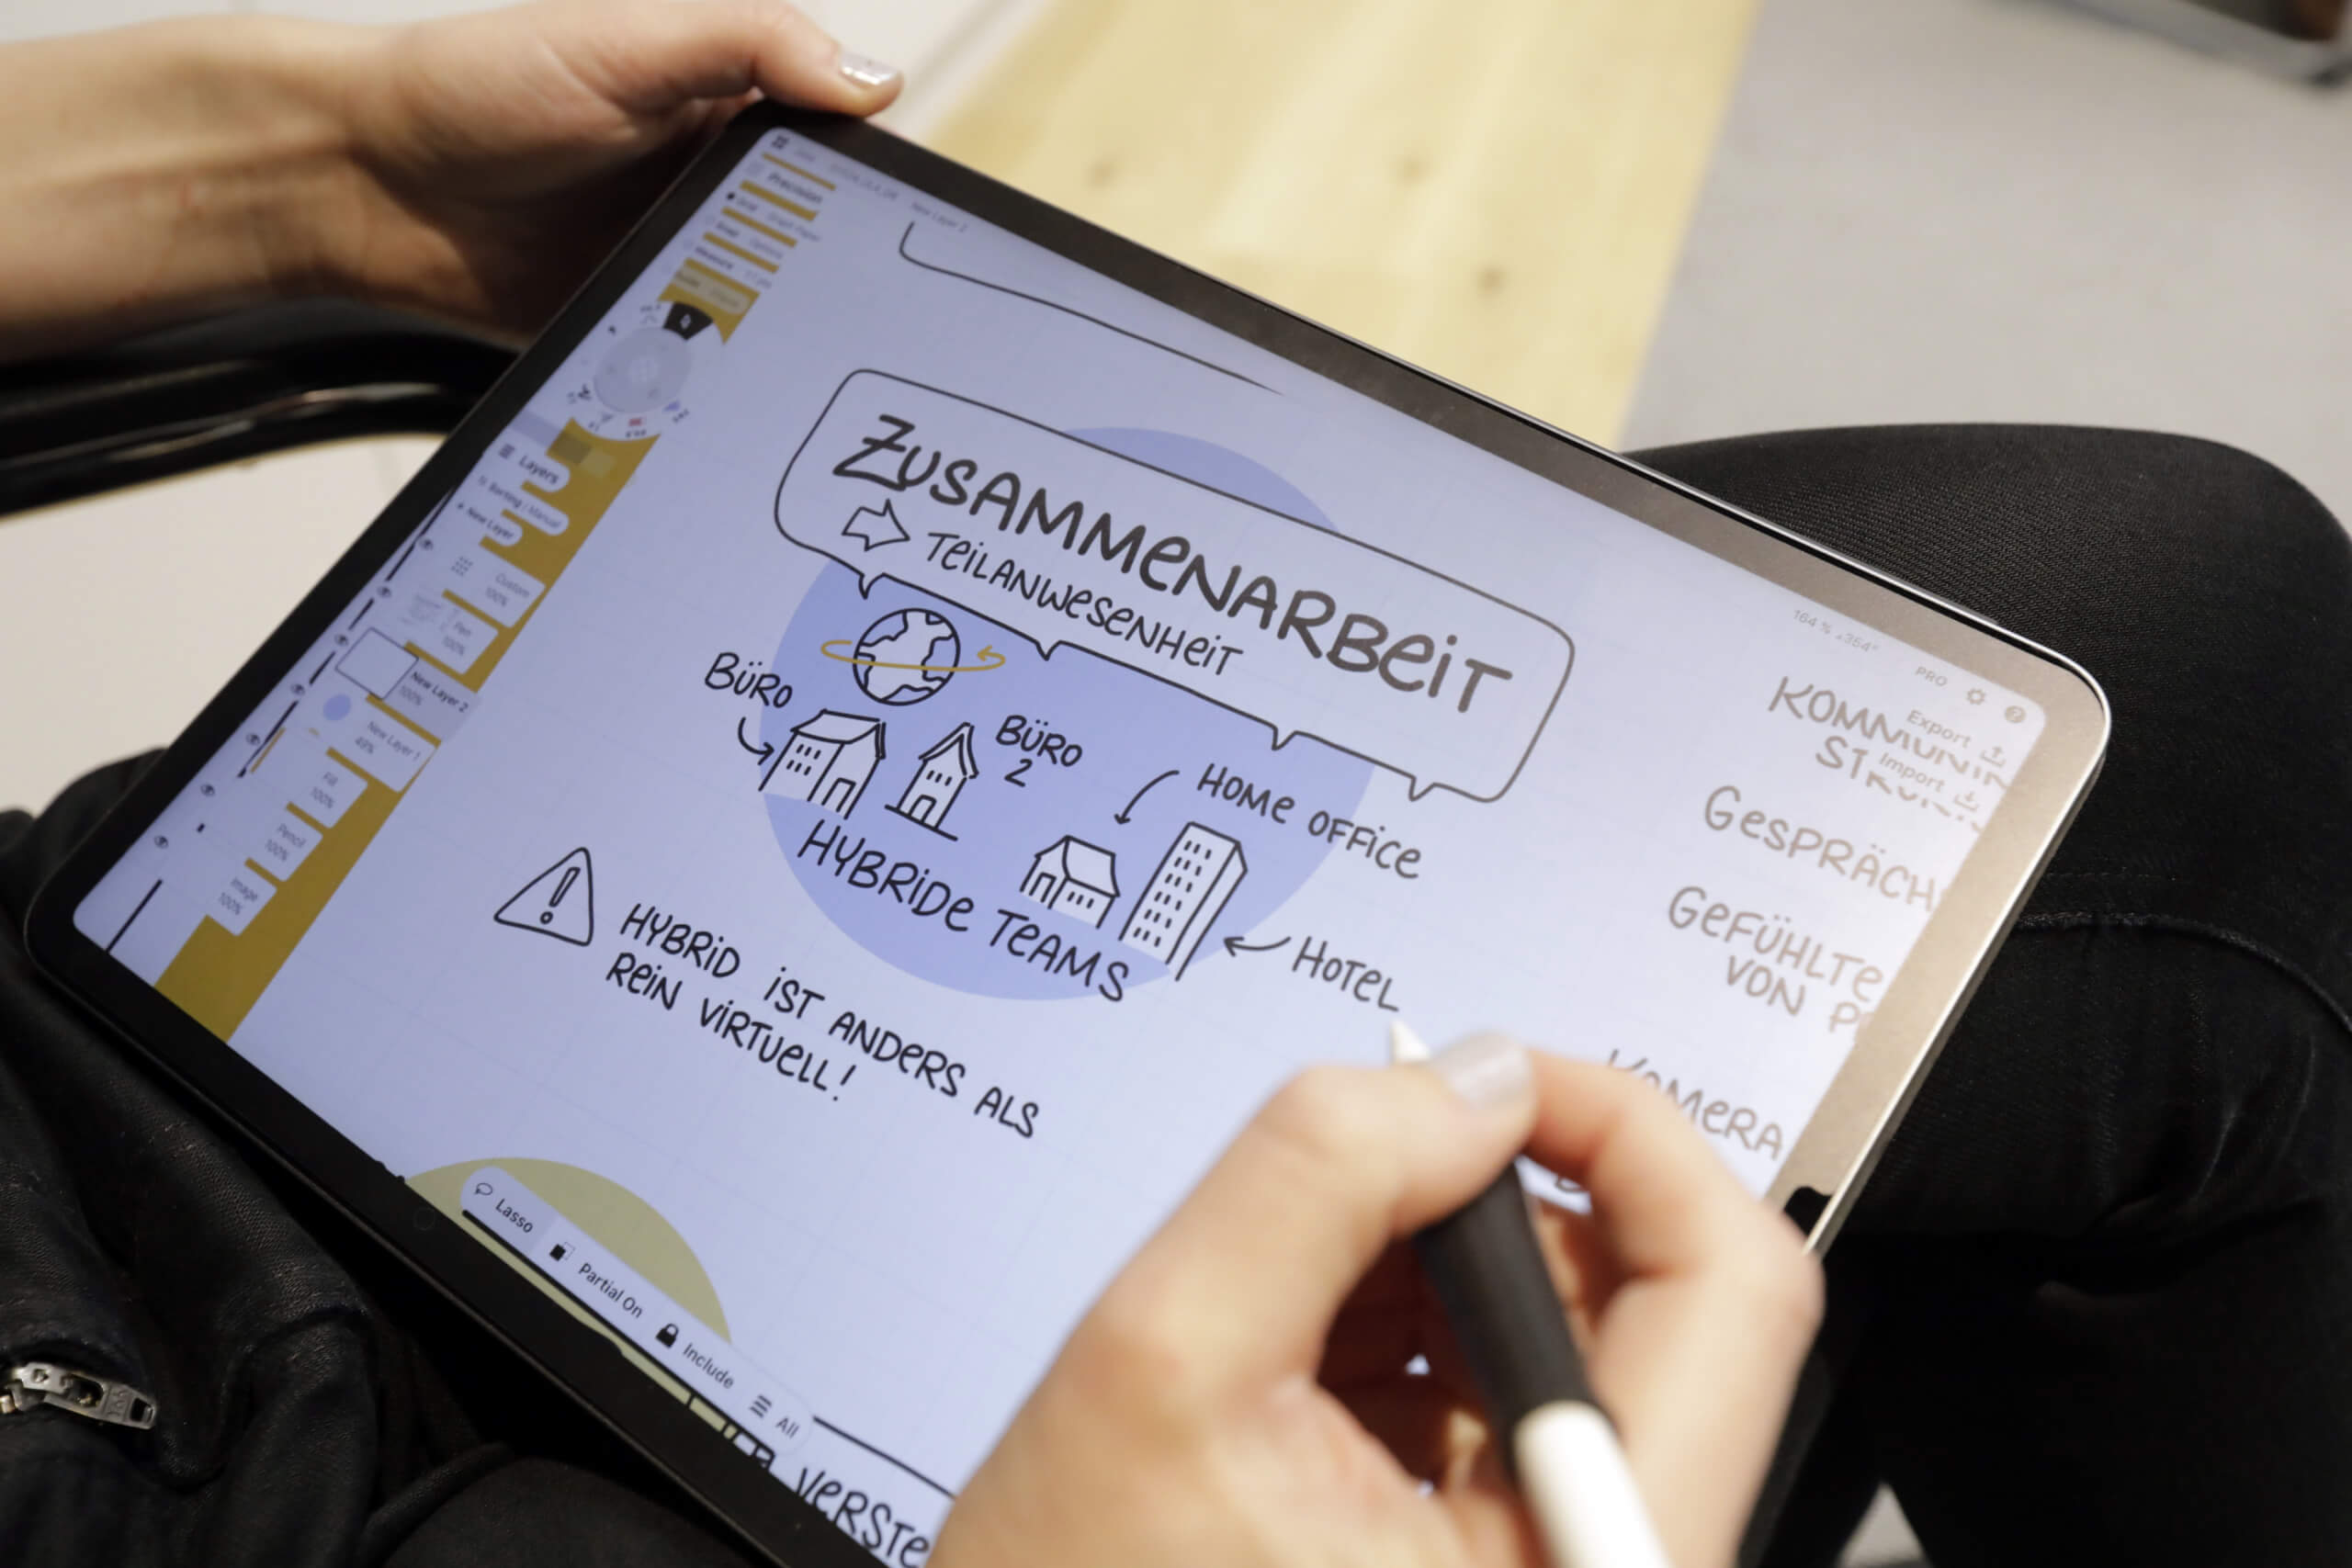 New Layer 2
Precision
Layers
Sorting | Manual
+ New Layer
Custom
100%
Pen
100%
New Layer 2
100%
New Layer 1
Fill
100%
Pencil
100%
Image
100%
ZUSAMMENARBEIT
TEILANWESENHEIT
BÜRO
BÜRO
2
HOME OFFICE
HOTEL
HYBRIDE TEAMS
HYBRID IST ANDERS ALS
REIN VIRTUELL!
164 %
PRO
Export
Import
GESPRÄCH
GEFÜHLTE
VON P
KAMERA
Lasso
Partial On
Include
All
VERSTE